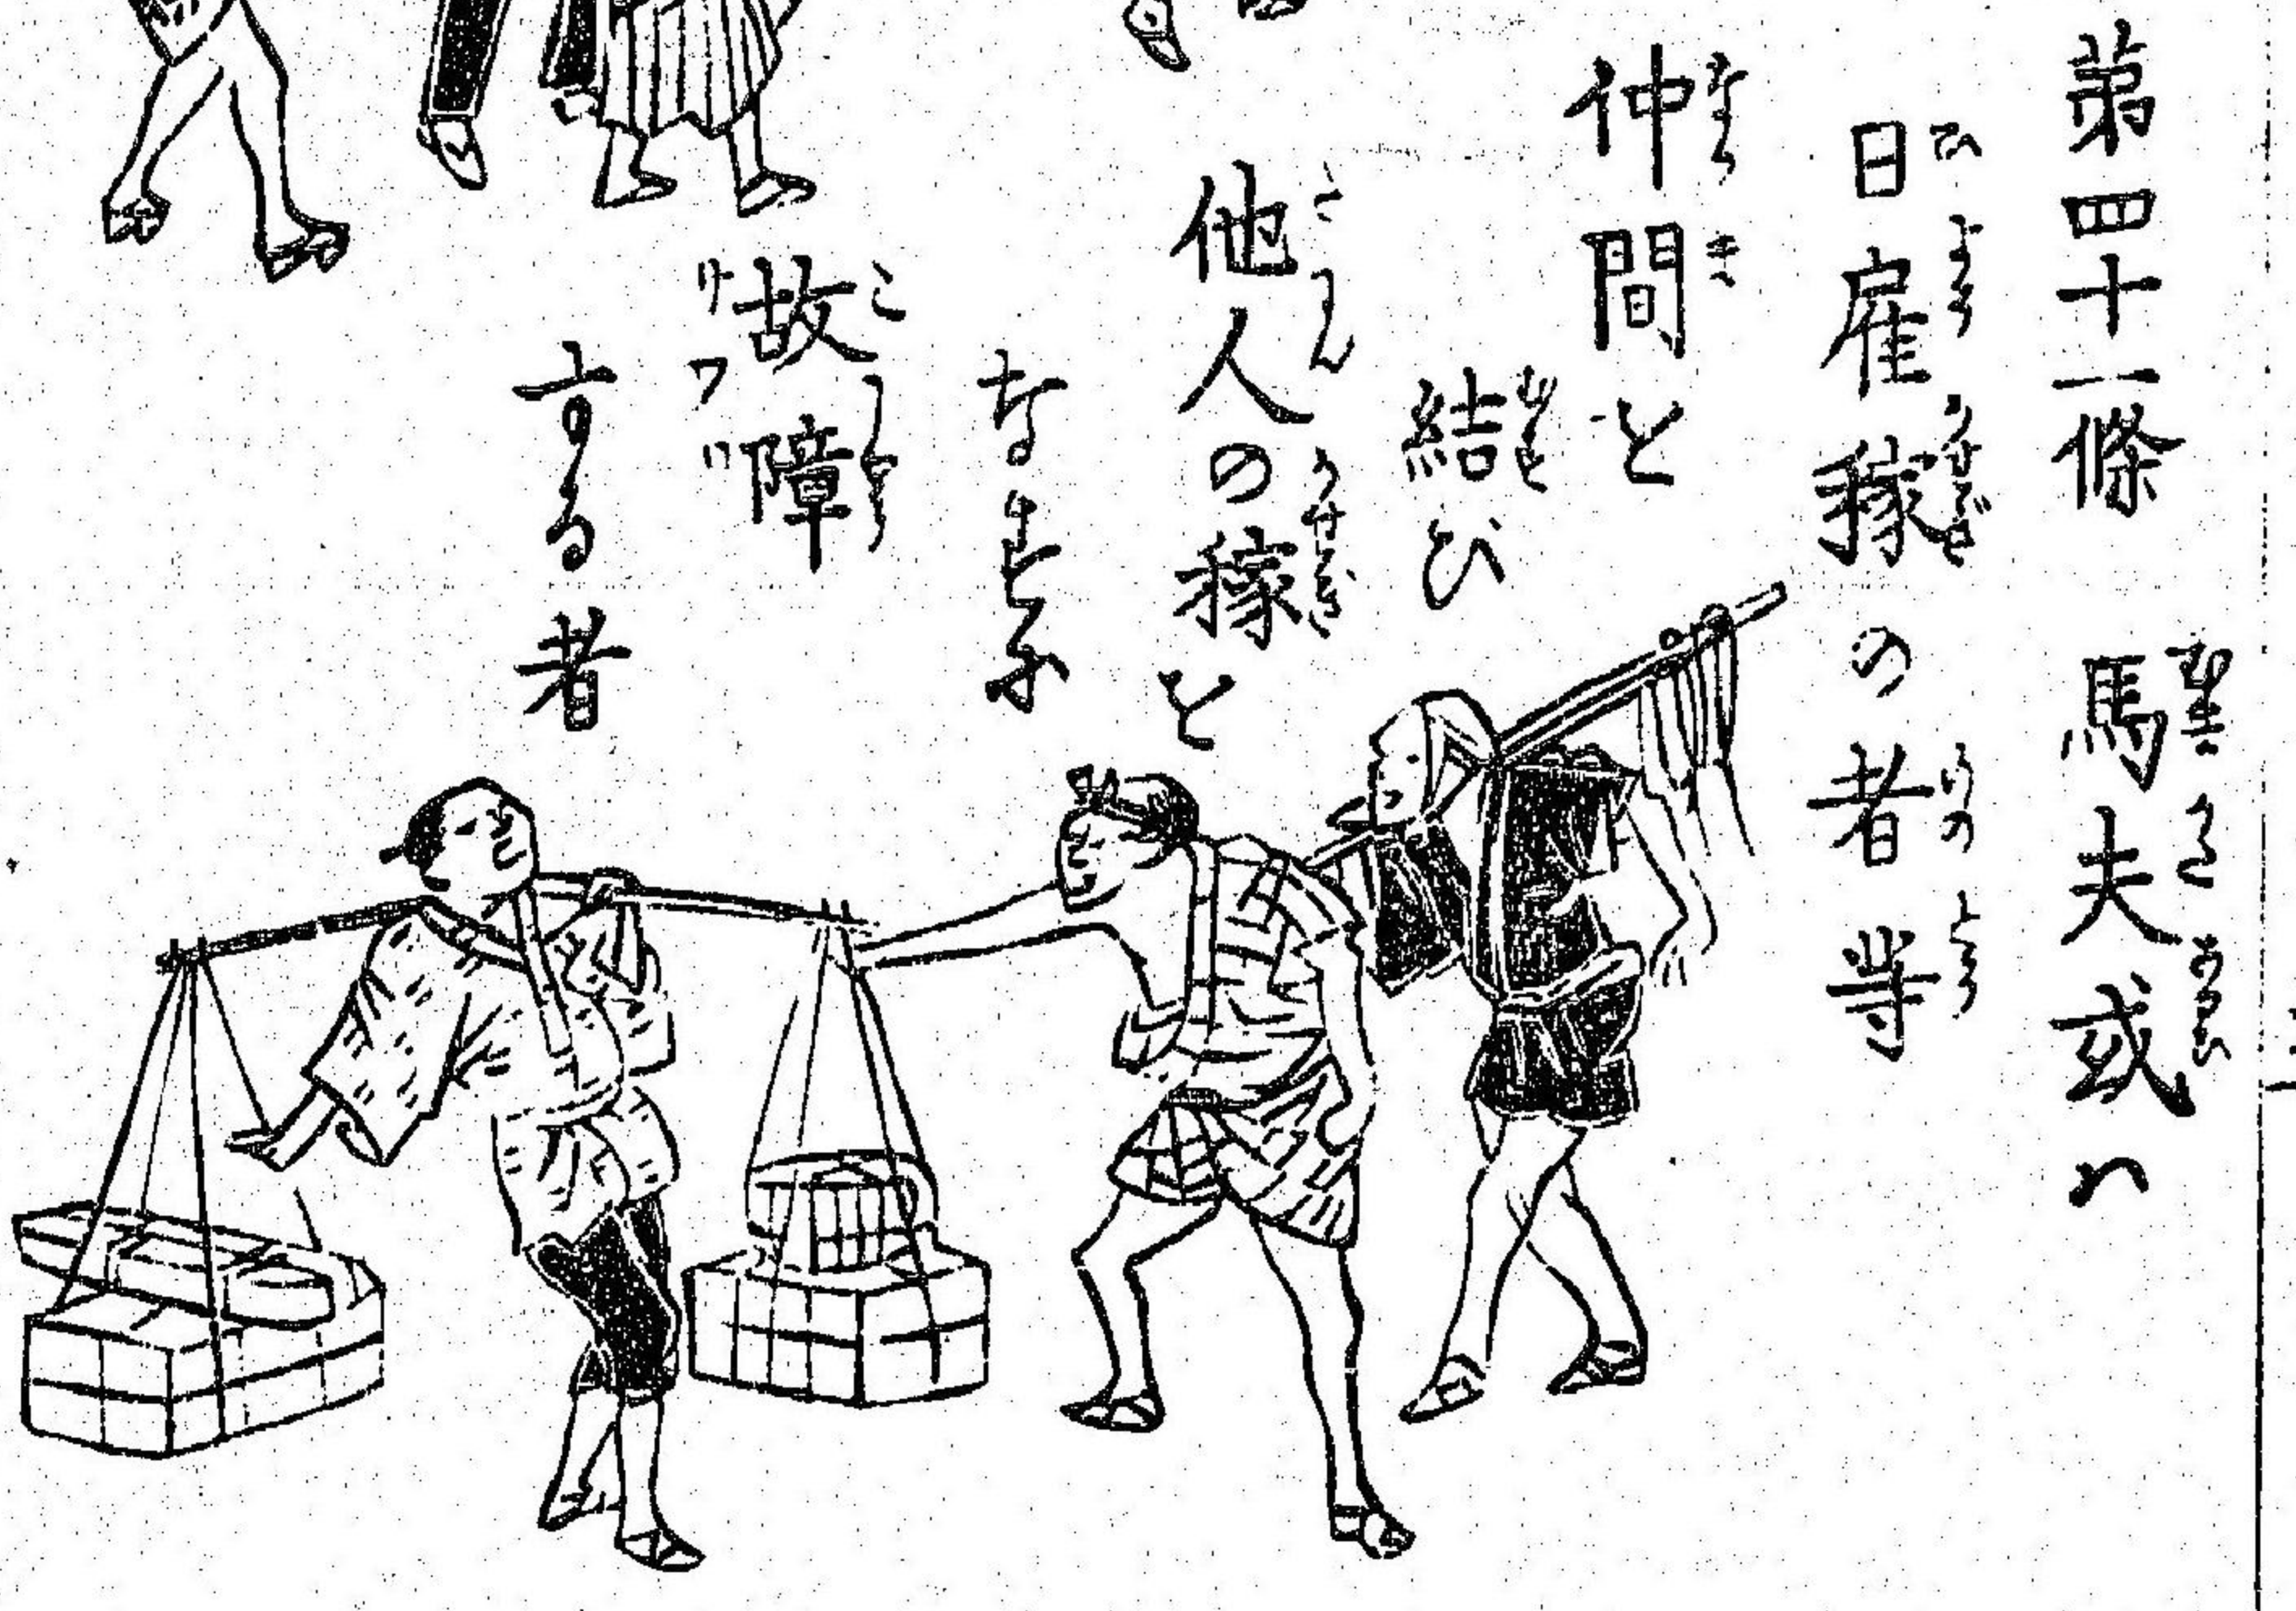 第四十一條　馬夫或ハ
日雇稼の者等
仲間を
結び
他人の稼を
なすに
故障
する者